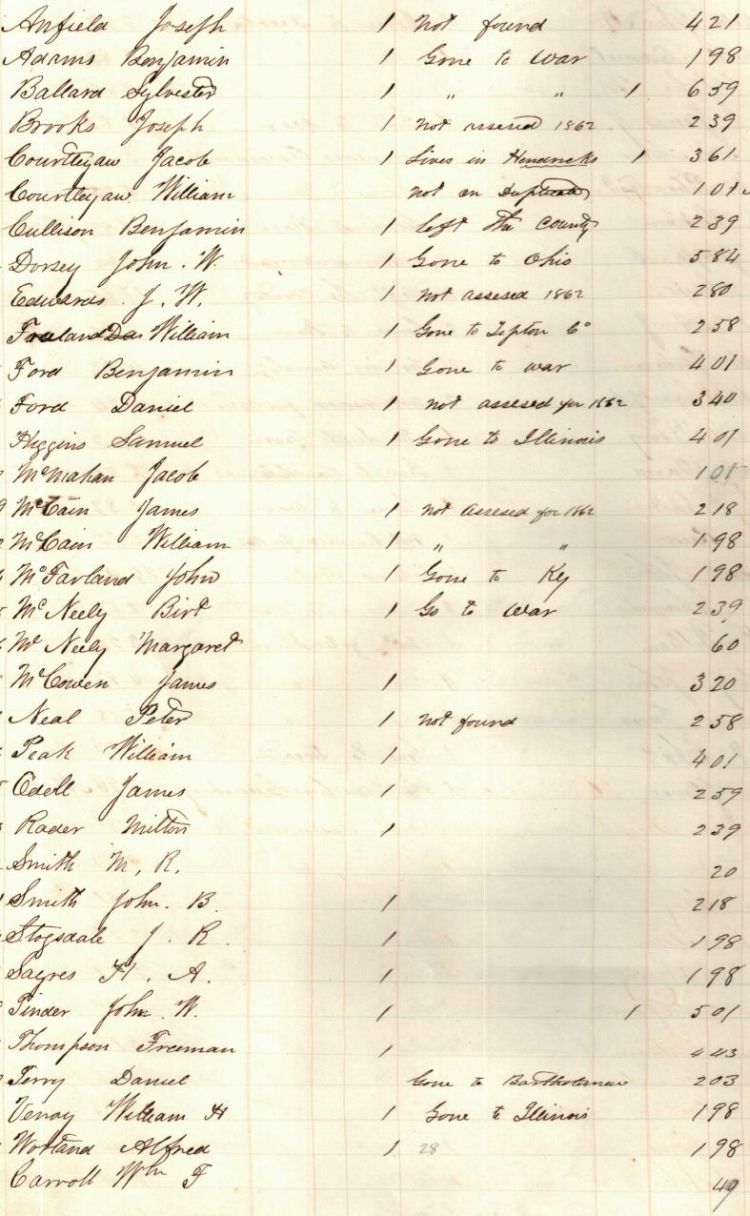 Anfield Joseph 1 Not found 421
Adams Benjamin 1 Gone to War 198
Ballard Sylvester 1 " " 1 659
Brooks Joseph 1 Not assesed 1862 239
Courtleyaw Jacob 1 Lives in Hendricks 1 361
Courtleyaw William Not on Duplicate 101
Cullison Benjamin 1 left the County 239
Dorsey John . W. 1 Gone to Ohio 584
Edwards . J. W. 1 Not assesed 1862 280
William 1 Gone to Tipton Co 258
Ford Benjamin 1 Gone to war 401
Ford Daniel 1 Not assesed for 1862 340
Higgins Samuel 1 Gone to Illinois 401
McMahan Jacob 101
McCain James 1 Not Assesed for 1862 218
McCain William 1 " " 198
McFarland John 1 Gone to Ky 198
McNeely Birt 1 Go to War 239
Mc Neely Margaret 60
McCowen James 1 320
Neal Peter 1 Not found 258
Peak William 1 401
Odell James 1 259
Rader Milton 1 239
Smith M. R. 20
Smith John. B. 1 218
Stogsdale J. R. 1 198
Sayres H. A. 1 198
Pinder John. W. 1 1 501
Thompson Freeman 1 443
Terry Daniel Gone to Bartholomew 203
Venoy William H 1 Gone to Illinois 198
Worland Alfred 1 28 198
Carroll Wm F 49